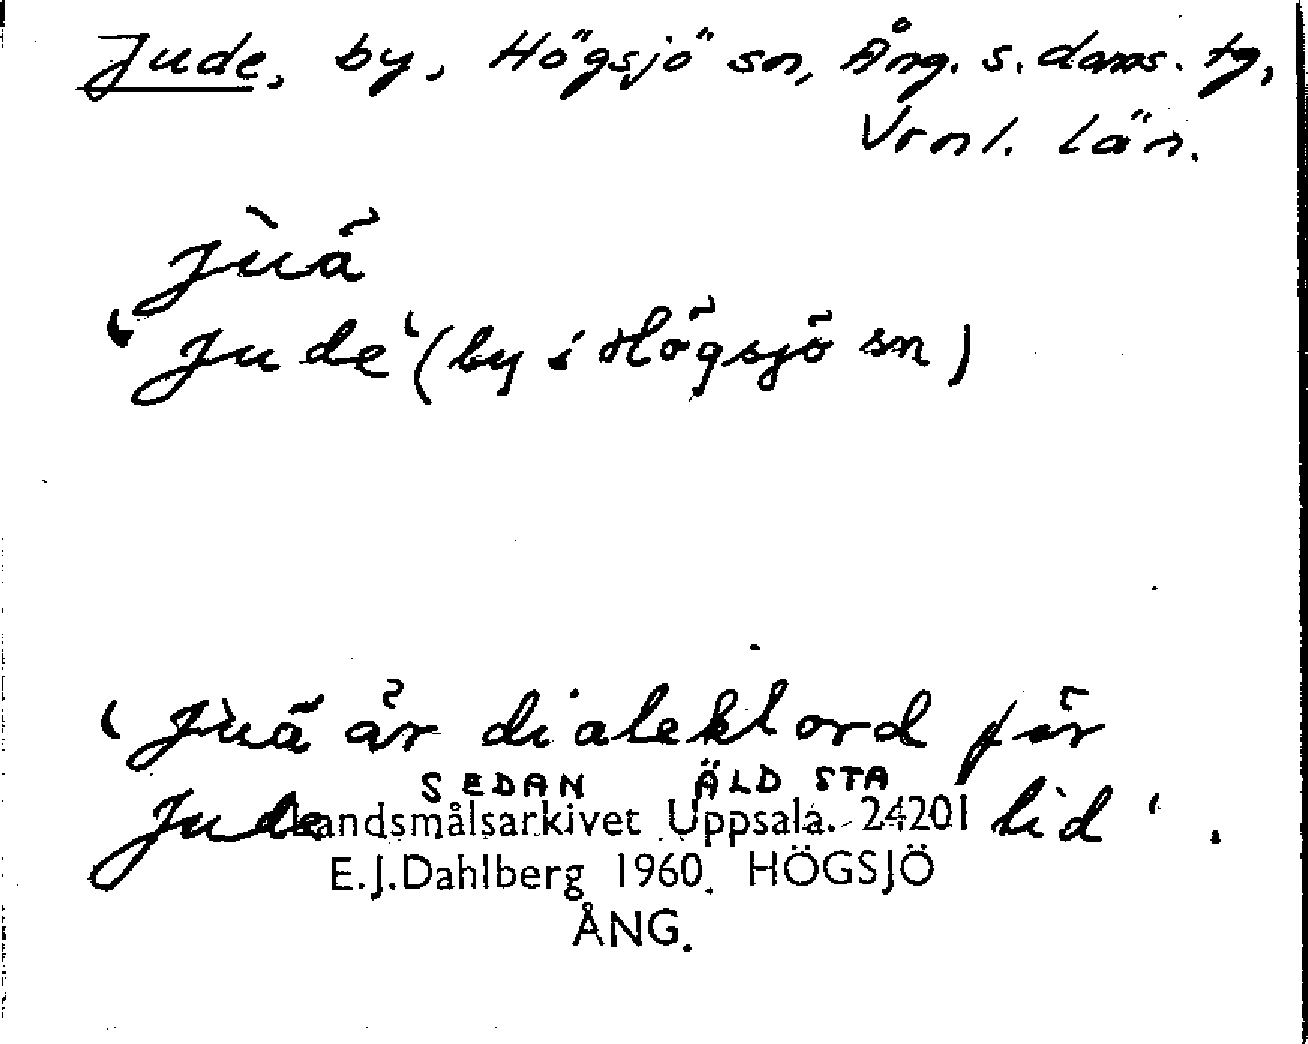 Jude, by, Högsjö sn, Ång. s. doms. tg,
Vrnl. län.
jùä
"Jude" (by i Högsjö sn)
"Jùä är dialektord för
SEDAN ÄLDSTA
Jude tid".
Landsmålsarkivet Uppsala. 24201
E.J.Dahlberg 1960. HÖGSJÖ
ÅNG.